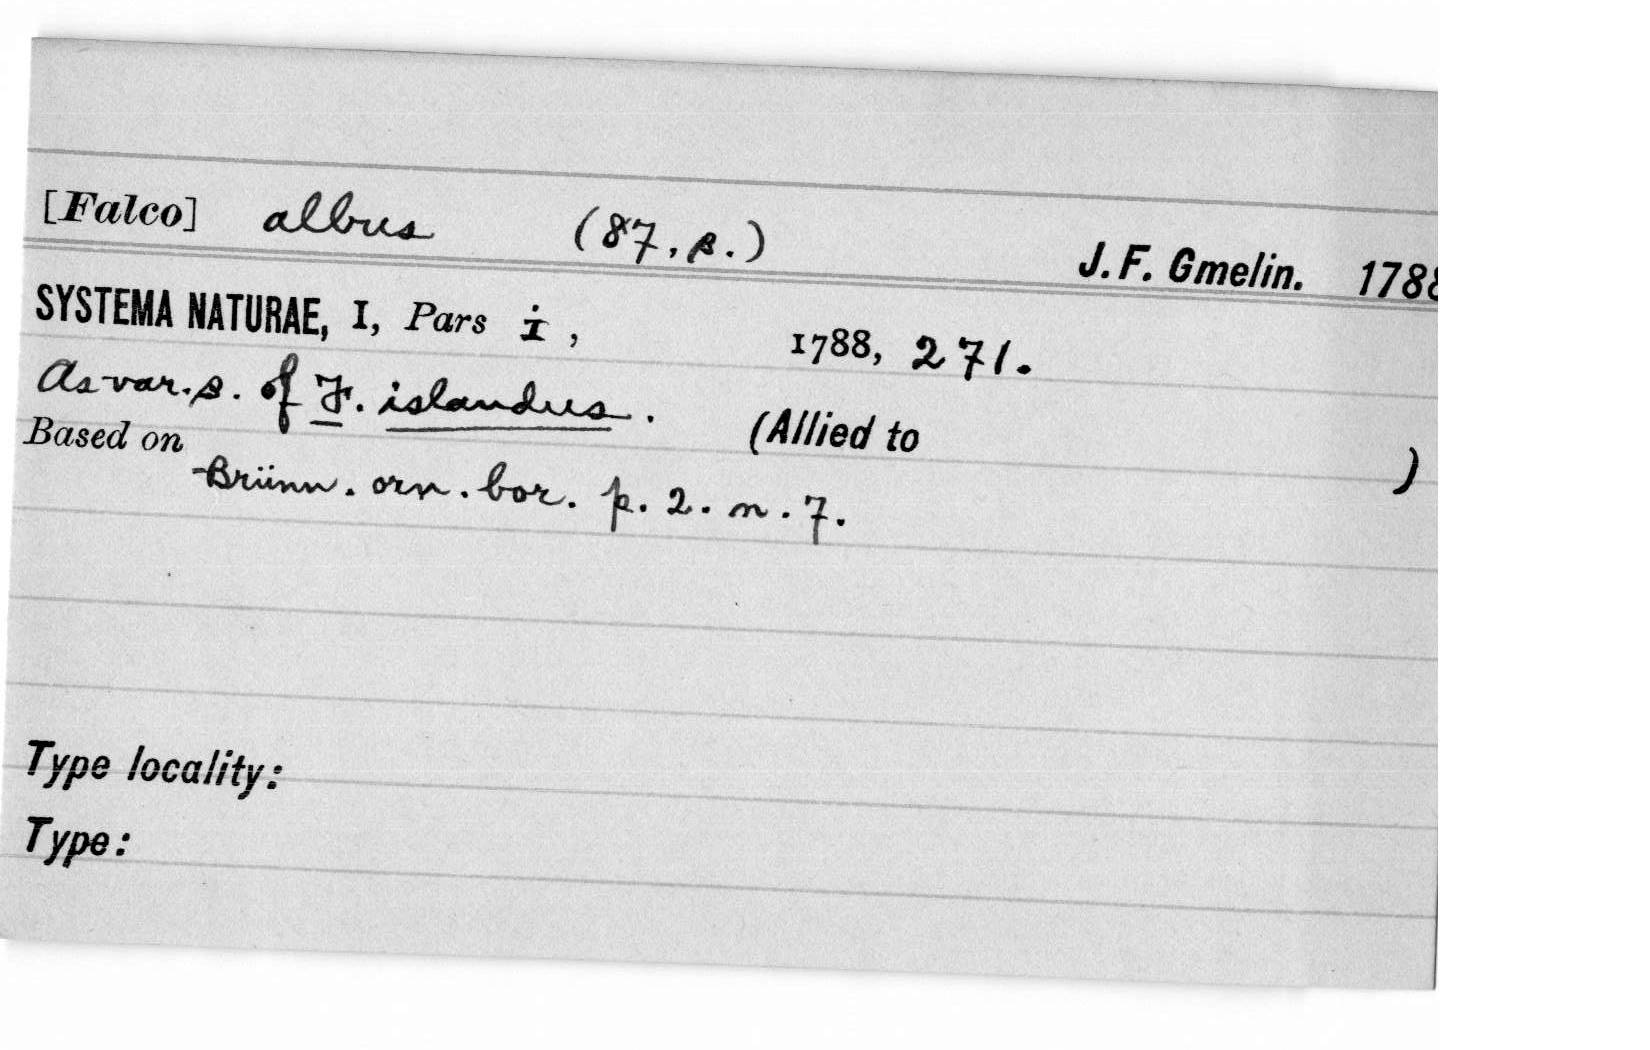 [Falco] albus (87.β.) J. F. Gmelin. 1788
SYSTEMA NATURAE, I, Pars i, 1788, 271.
As var. β. of F. islandus. (Allied to )
Based on Brünn. orn. bor. p. 2. n. 7.
Type locality:
Type: